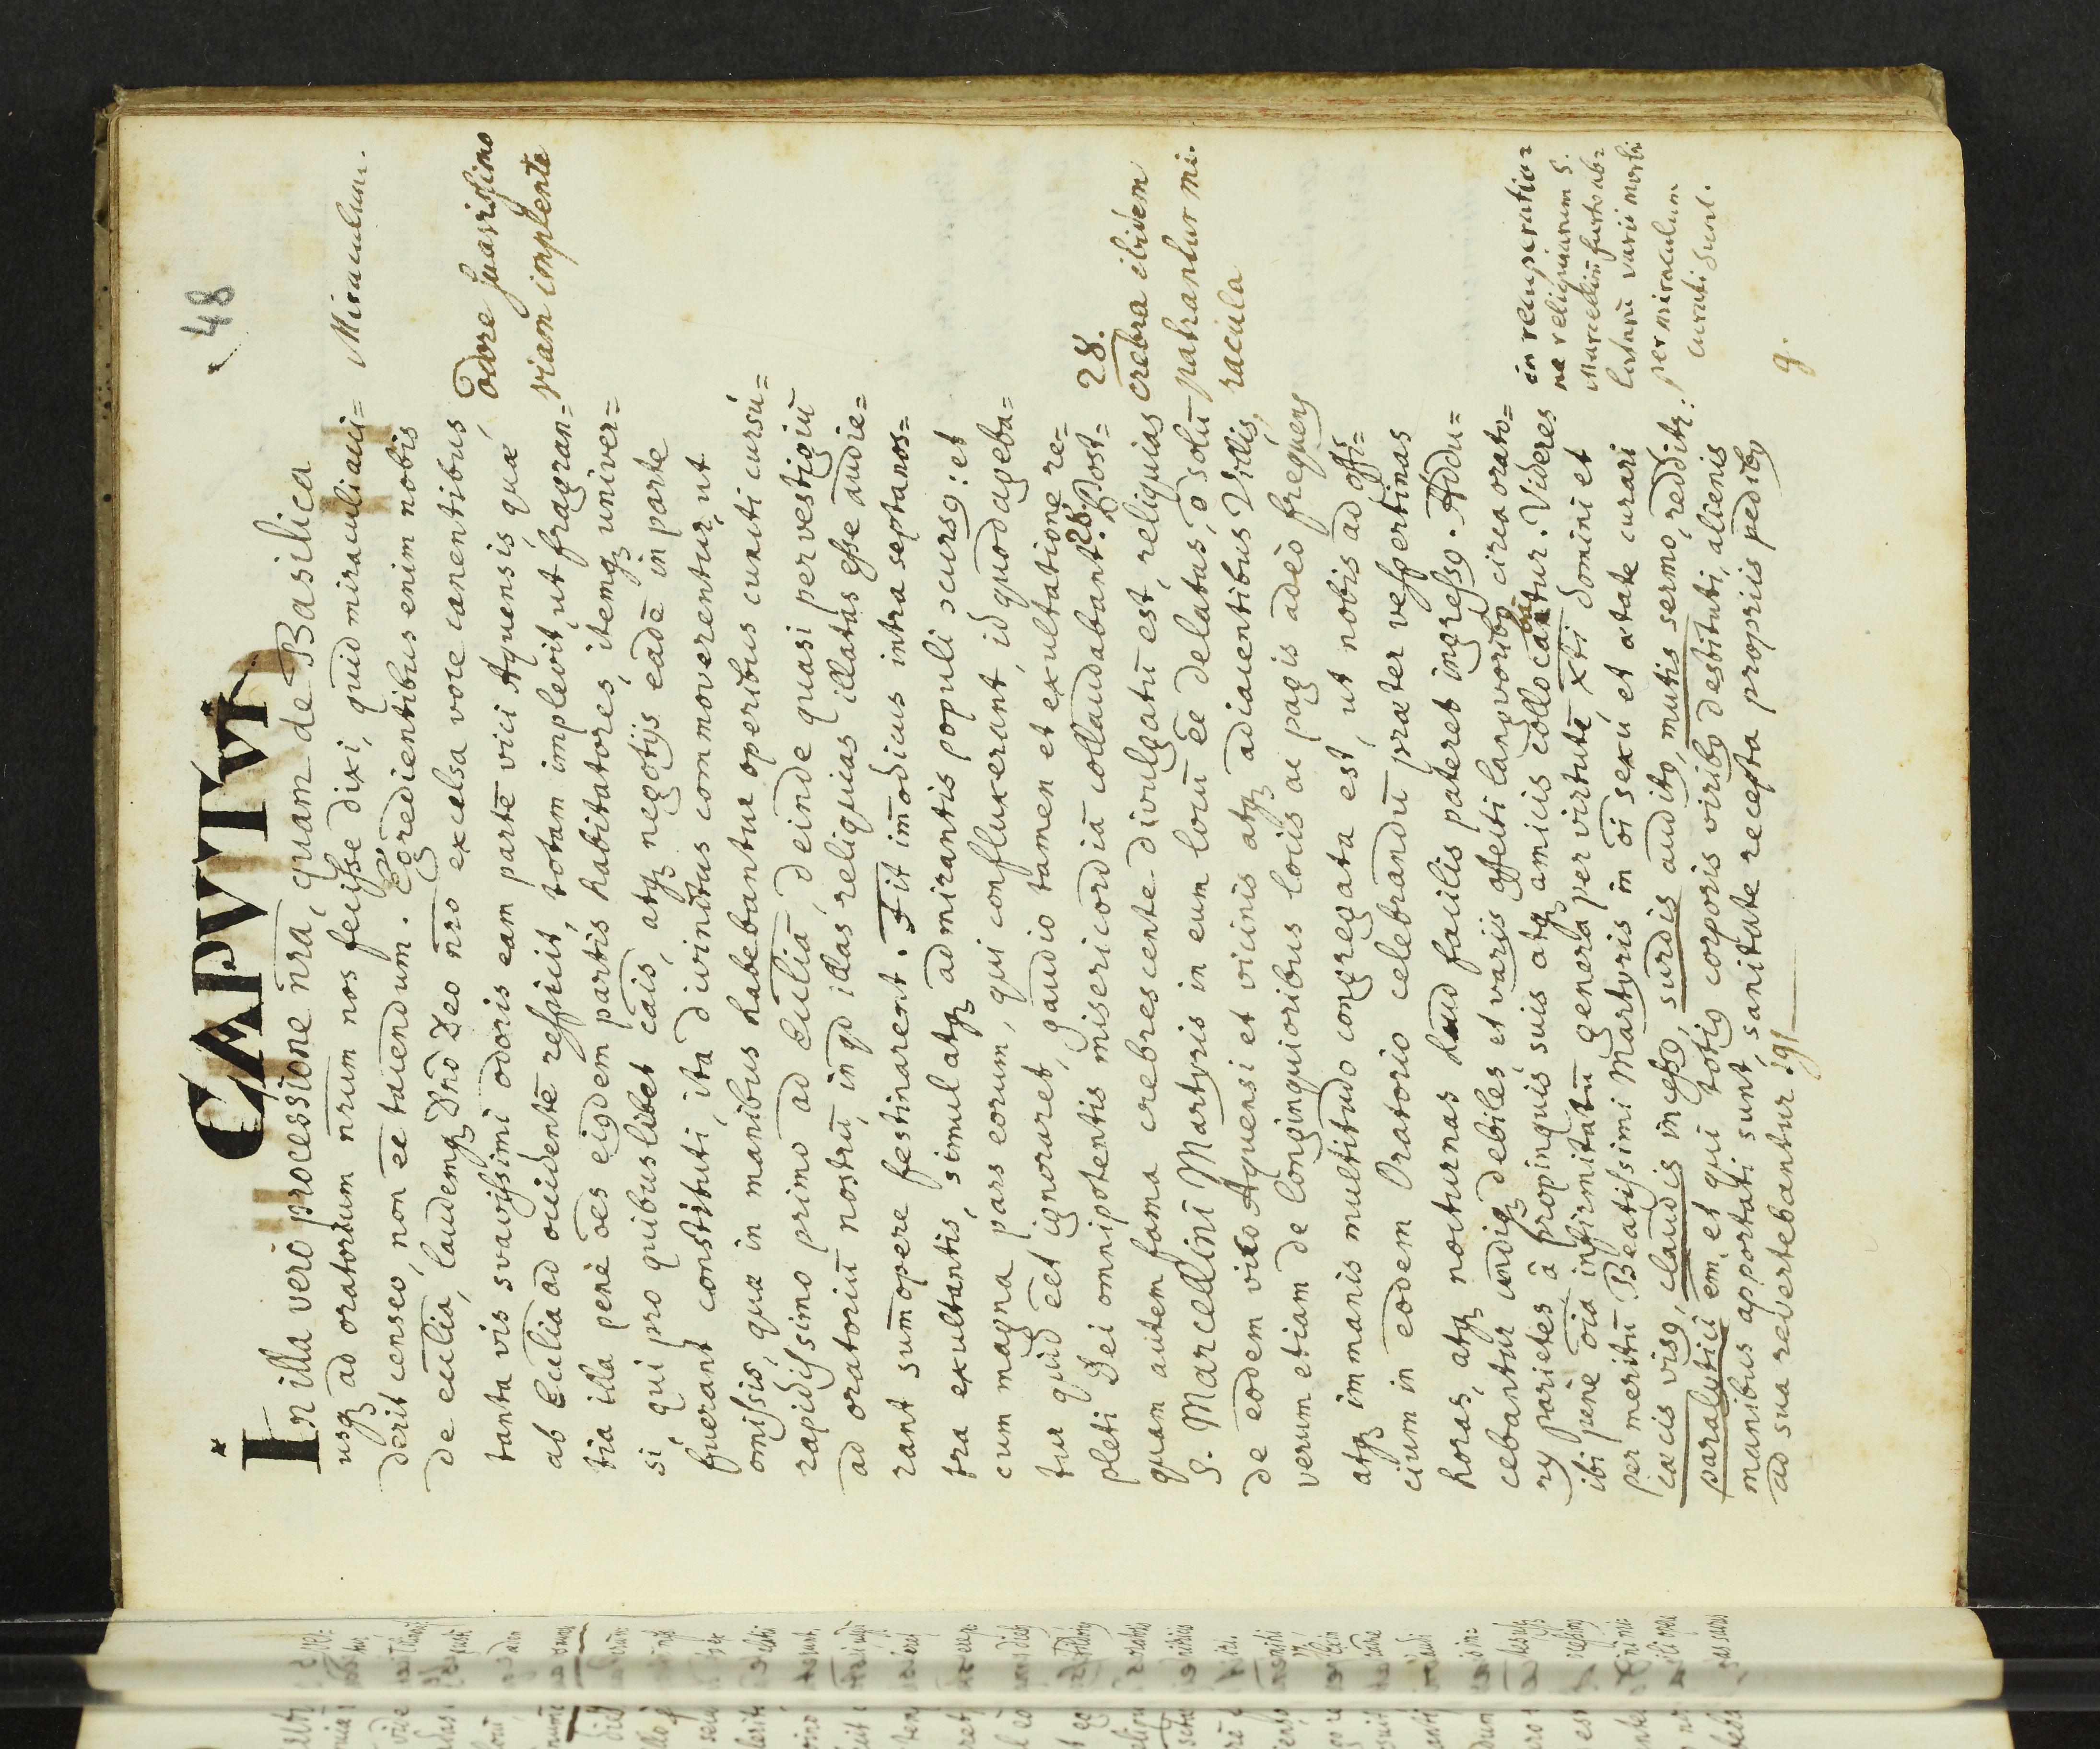 48
CAPVT VI
In illa vero processione nr̄a, quam de Basilica
usqꝫ ad oratorium nr̄um nos fecisse dixi, quid miraculi acci=
derit censeo, non eē tacendum. Egredientibus enim nobis
de ecclīa, laudemqꝫ Dn̄o Deo nr̄o excelsa voce canentibus,
tanta vis svavissimi odoris eam partē vici Aquensis, quæ
ab Ecclīa ad occidentē respicit, totam implevit, ut fragran=
tia illa penè oēs eiꝯdem partis habitatores, itemqꝫ univer=
si, qui pro quibuslibet cāis, atqꝫ negotijs eādē in parte
fuerant constituti, ita divinitus commoverentur, ut
omissis, quæ in manibus habebantur operibus cuncti cursú=
rapidissimo primo ad Ecclīā, deinde quasi per vestigiū
ad oratoriū nostrū, in qd illas reliquias illatas esse audie=
rant summopere festinarent. Fit im̄odicus intra septa nos=
tra exultantis, simul atqꝫ admirantis populi ↄcursꝯ: et
cum magna pars eorum, qui confluxerant, id quod ageba=
tur quid eēt ignoraret, gaudio tamen et exultatione re=
pleti Dei omnipotentis misericordiā collaudabant. 28. Post=
quam autem fama crebrescente divulgatū est, reliquias
S. Marcellini Martyris in eum locū eē delatas, ō solū
de eodem vico Aquensi et vicinis atqꝫ adiacentibus Villis,
verum etiam de longinquioribus locis ac pagis adeò frequens
atqꝫ immanis multitudo congregata est, ut nobis ad offi=
cium in eodem Oratorio celebrandū præter vespertinas
horas, atqꝫ nocturnas haud facilis pateret ingressꝯ. Addu=
cebantur undiqꝫ debiles et varijs affecti langvoribꝯ circa orato=
ry parietes à propinquis, suis atqꝫ amicis collocabantur. Videres
ibi penè oīa infirmitatū genera per virtutē xp̄i domini et
per meritū Beatissimi Martyris in oī sexu, et ætate curari
cæcis visꝯ, claudis incessꝯ, surdis auditꝯ, mutis sermo, redditꝫ:
paralytici em, et qui totiꝯ corporis viribꝯ destituti, alienis
manibus apportati sunt, sanitate recepta propriis pedibꝯ
ad sua revertebantur. ꝯꝯ
Miraculum.
odore suavissimo
viam implente
28.
crebra ibidem
patrantur mi.
racula
in recuperatio=
ne reliquiarum S.
Marcellini furto ab=
lutarū varii morbi
per miraculum
curati sunt.
g.